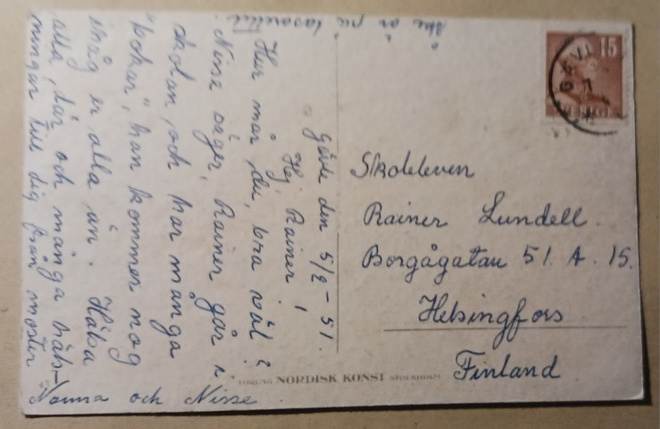 Gävle den 5/2-51.
Hej, Rainer!
Hur mår du, bra väl?
Nisse säger, Rainer går i
skolan och har många
"bokar", han kommer nog
ihåg er alla än. Hälsa
alla där och många häls-
ningar till dig från moster
Nanna och Nisse.
är på lasarettet
15
Skoleleven
Rainer Lundell.
Borgågatan 51. A. 15.
Helsingfors
Finland
NORDISK KONST STOCKHOLM